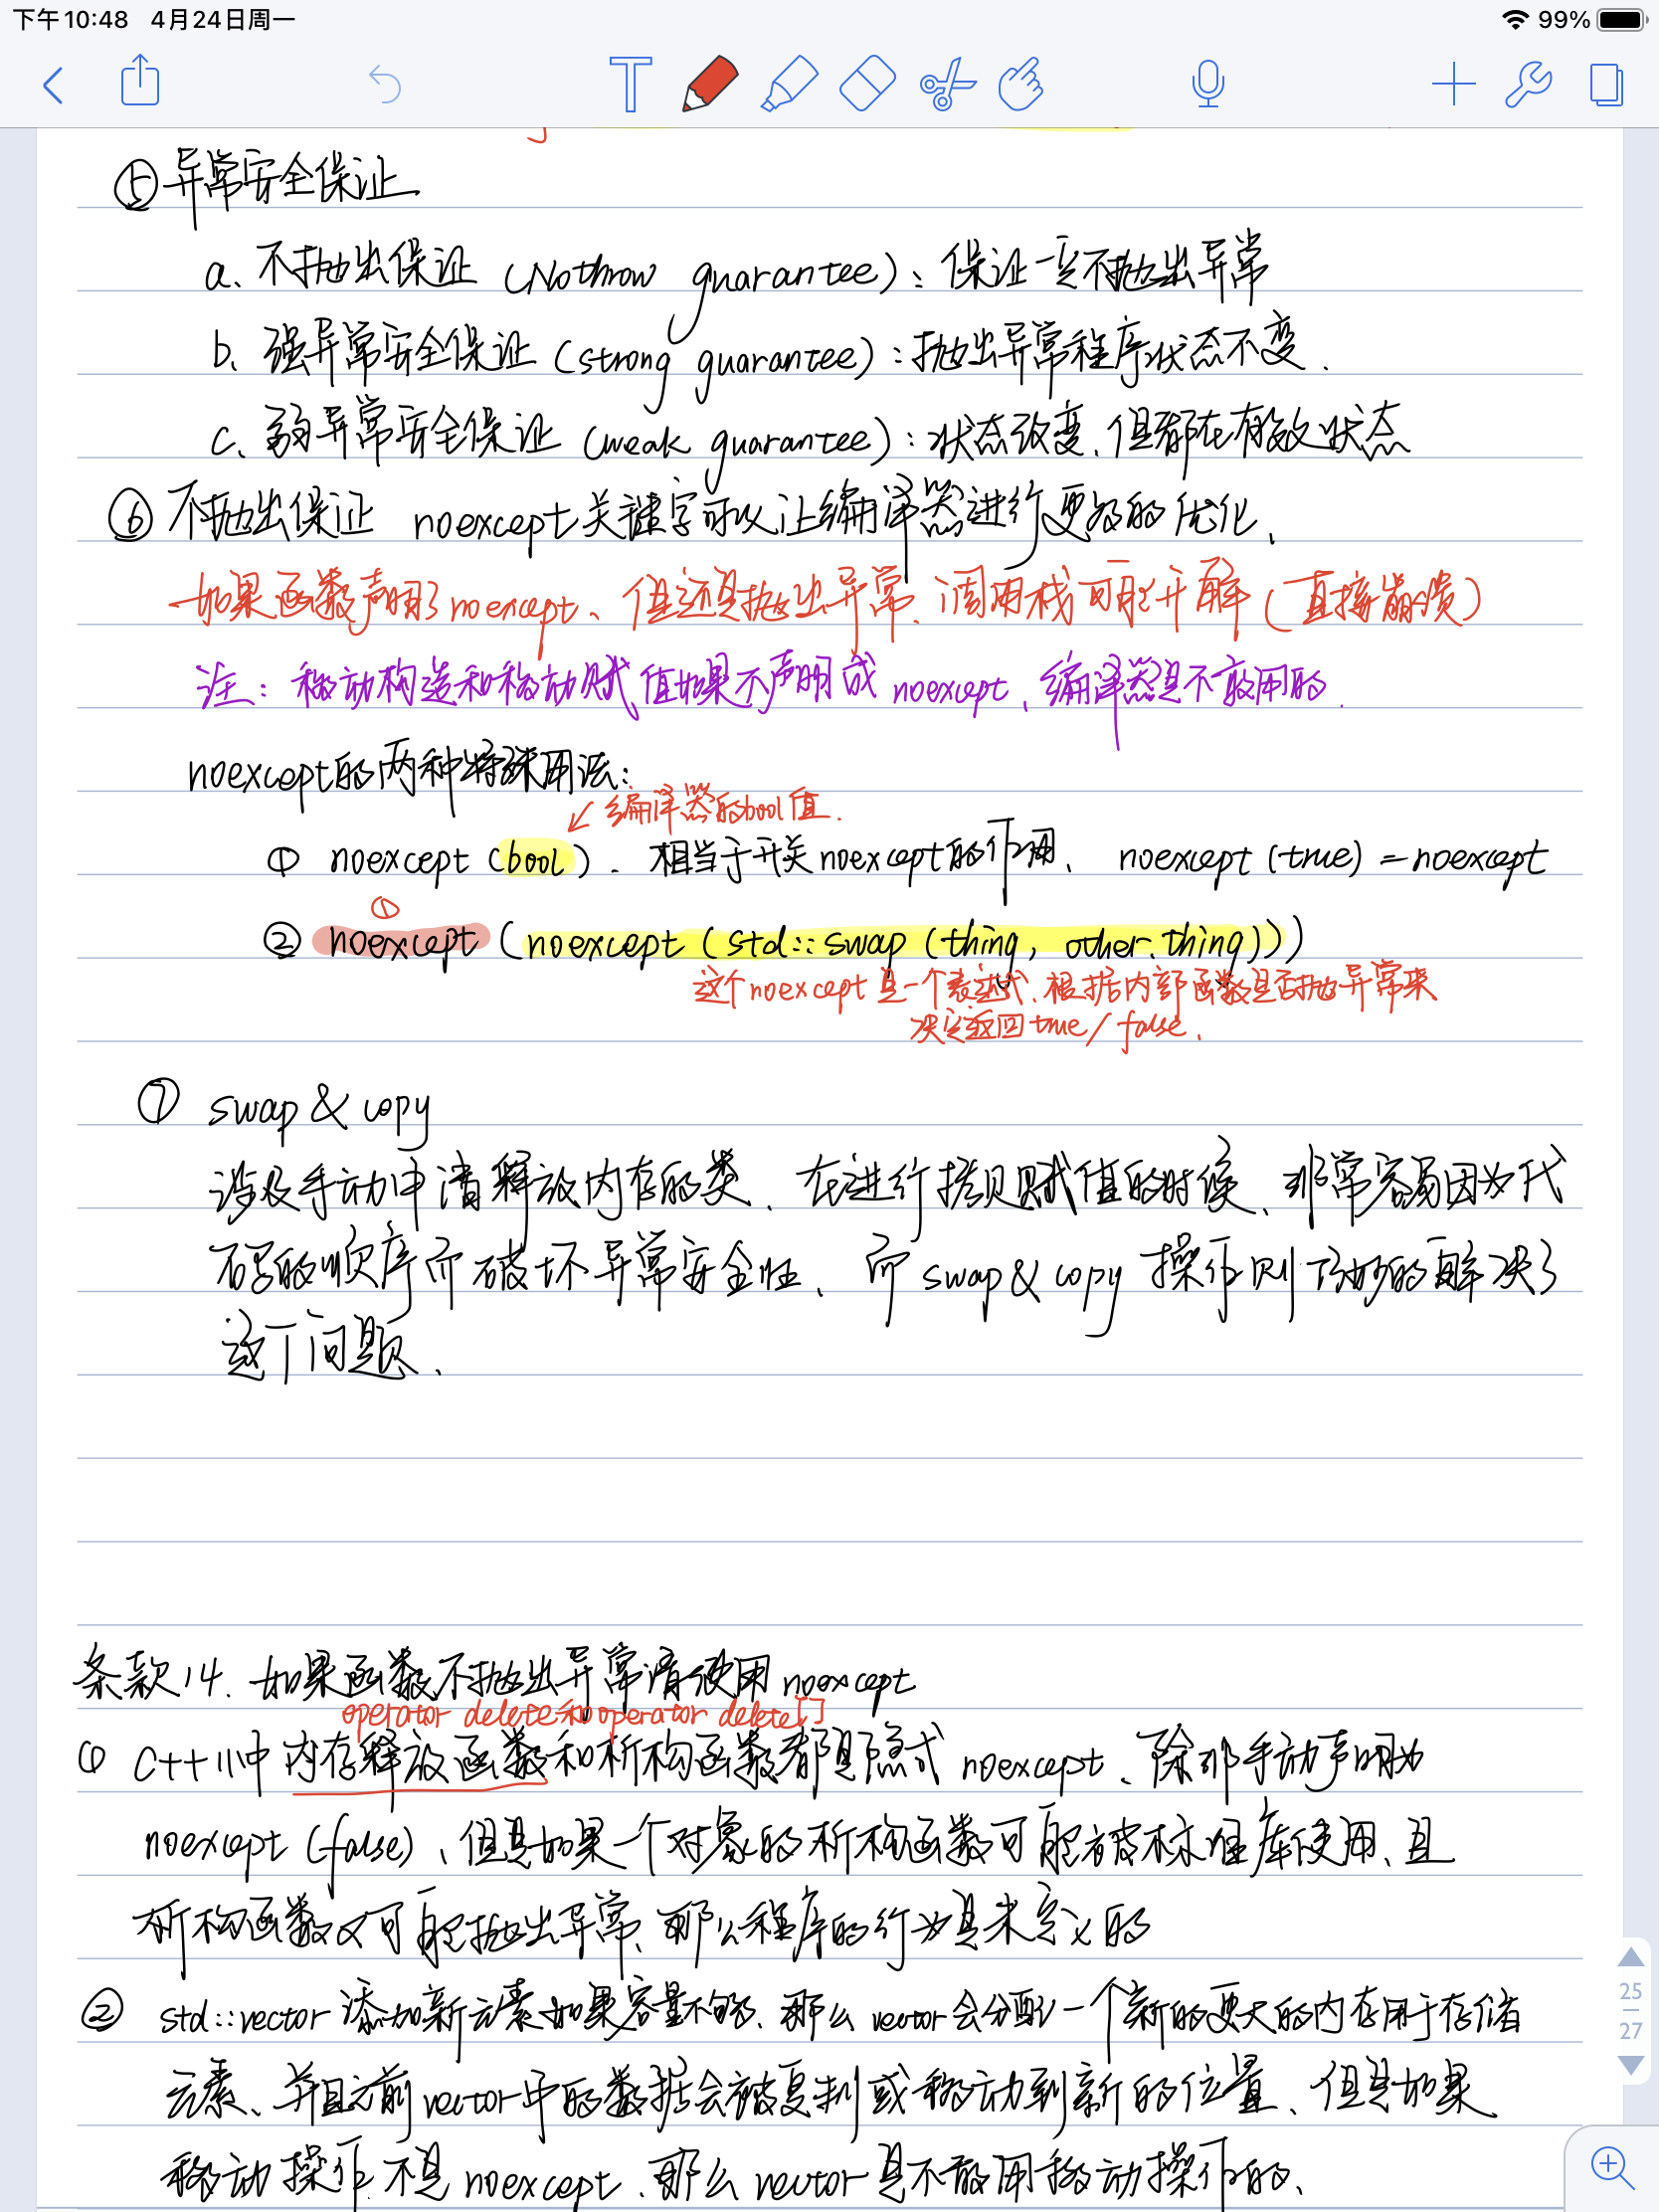 下午10:48 4月24日周一
99%
⑤异常安全保证
a、不抛出保证 (Nothrow guarantee)：保证一定不抛出异常
b、强异常安全保证 (strong guarantee)：抛出异常程序状态不变.
c、弱异常安全保证 (weak guarantee)：状态改变、但都在有效状态
⑥ 不抛出保证 noexcept关键字可以让编译器进行更好的优化、
如果函数声明了noexcept、但还是抛出异常、调用栈可能开解(直接崩溃)
注：移动构造和移动赋值如果不声明成 noexcept、编译器是不敢用的.
noexcept的两种特殊用法：
↙编译器的bool值.
① noexcept (bool). 相当于开关noexcept的作用、 noexcept (true) = noexcept
①
② noexcept (noexcept (std::swap (thing, other.thing)))
这个noexcept是一个表达式、根据内部函数是否抛异常来
决定返回 true/false.
⑦ swap & copy
涉及手动申请释放内存的类、在进行拷贝赋值的时候、非常容易因为代
码的顺序而破坏异常安全性、而 swap & copy 操作则巧妙的解决了
这个问题.
条款14. 如果函数不抛出异常请使用 noexcept
operator delete和operator delete[]
① C++11中 内存释放函数和析构函数都是隐式 noexcept、除非手动声明为
noexcept (false)、但是如果一个对象的析构函数可能被标准库使用、且
析构函数又可能抛出异常、那么程序的行为是未定义的
② std::vector 添加新元素如果容量不够、那么 vector会分配一个新的更大的内存用于存储
元素、并且之前vector中的数据会被复制或移动到新的位置、但是如果
移动操作不是 noexcept、那么 vector 是不敢用移动操作的、
25
27